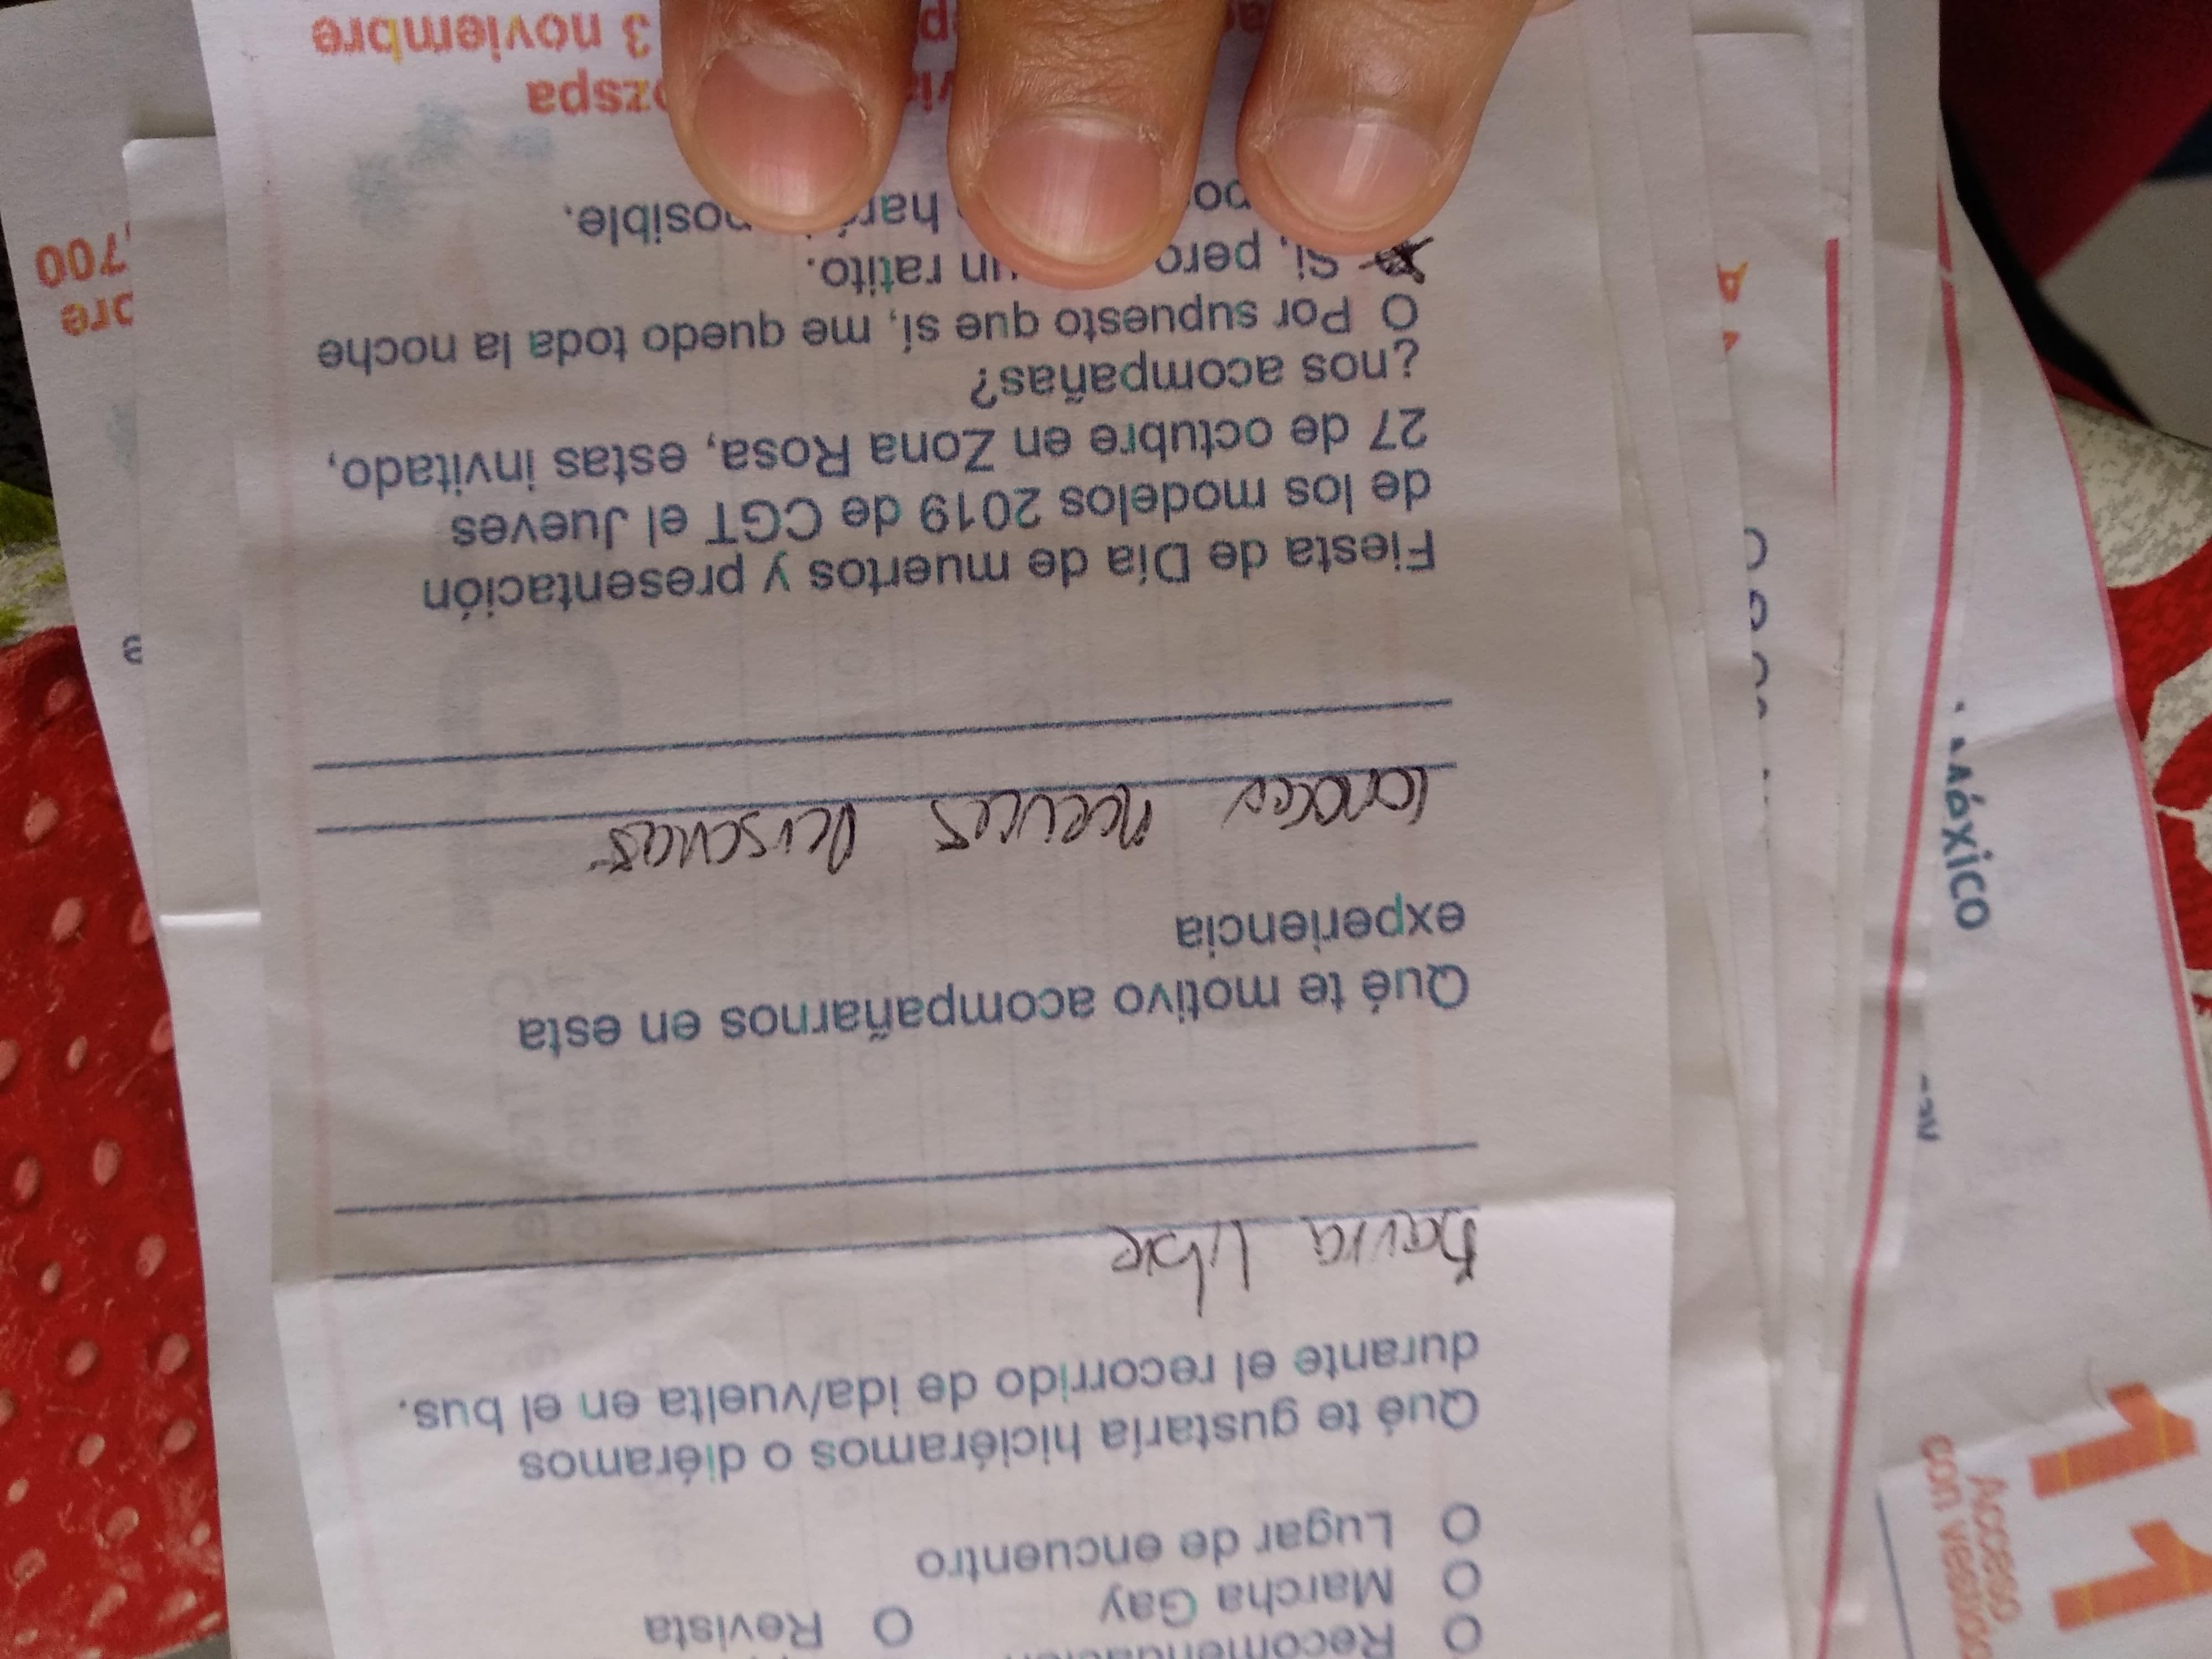 O Marcha Gay O Revista
O Lugar de encuentro
Qué te gustaría hiciéramos o diéramos
durante el recorrido de ida/vuelta en el bus.
Barra Libre
Qué te motivo acompañarnos en esta
experiencia
conocer nuevas personas
Fiesta de Día de muertos y presentación
de los modelos 2019 de CGT el Jueves
27 de octubre en Zona Rosa, estas invitado,
¿nos acompañas?
O Por supuesto que sí, me quedo toda la noche
Si, pero un ratito.
3 noviembre
11
Acceso
con
700